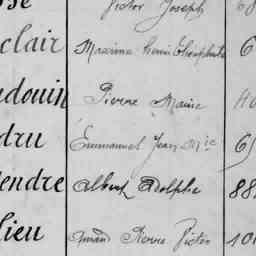 Victor Joseph
clair Maxime Henri Théophile 6
udouin Pierre Marie
dru Emmanuel Jean Mie 69
endre Albert Adolphe 88
lieu Amand Pierre Victor 10